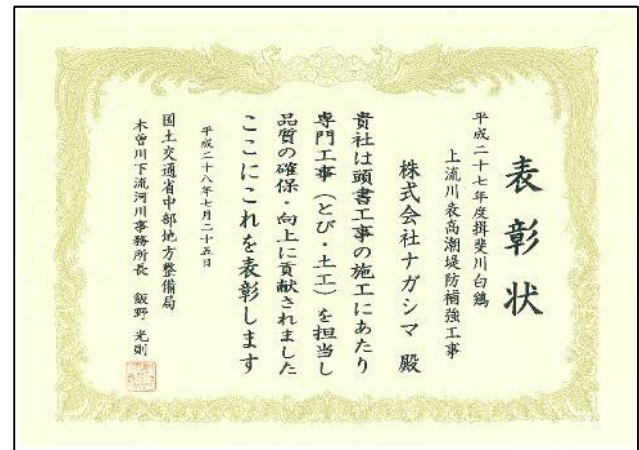 表彰状
平成二十七年度揖斐川白鶏
上流川表高潮堤防補強工事
株式会社ナガシマ 殿
貴社は頭書工事の施工にあたり
専門工事（とび・土工）を担当し
品質の確保・向上に貢献されました
ここにこれを表彰します
平成二十八年七月二十五日
国土交通省中部地方整備局
木曽川下流河川事務所長 飯野 光則